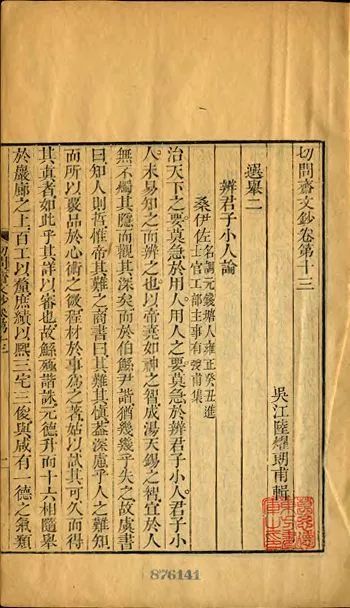 切問齋文鈔卷第十三
吳江陸燿朗甫輯
選舉二
辨君子小人論
桑伊佐名調元錢塘人雍正癸丑進
士官工部主事有弢甫集
治天下之要莫急於用人用人之要莫急於辨君子小人君子小
人未易知之而辨之也以帝堯如神之智成湯天錫之智宜於人
無不燭其隱而觀其深矣而於伯鯀尹諧猶幾幾乎失之故虞書
曰知人則哲惟帝其難之商書曰其難其愼蓋深慮乎人之難知
而所以裒品於心術之微程材於事爲之著姑以試其可久而得
其眞者如此乎其詳以審也故鯀殛諧誅元德升而十六相隨舉
於嚴廊之上百工以釐庶績以熙三宅三俊與咸有一德之氣類
切問齋文鈔 卷十三
一
876141